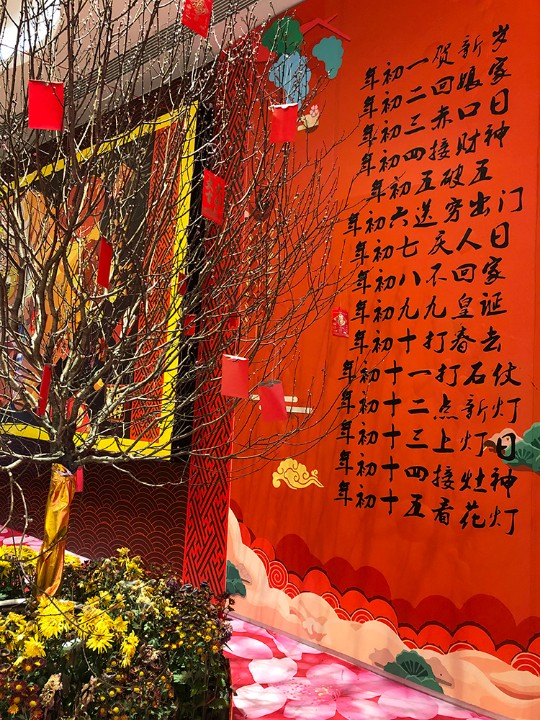 年初一贺新岁
年初二回娘家
年初三赤口日
年初四接财神
年初五破五
年初六送穷出门
年初七庆人日
年初八不回家
年初九九皇诞
年初十打春去
年初十一打石仗
年初十二点新灯
年初十三上灯日
年初十四接灶神
年初十五看花灯